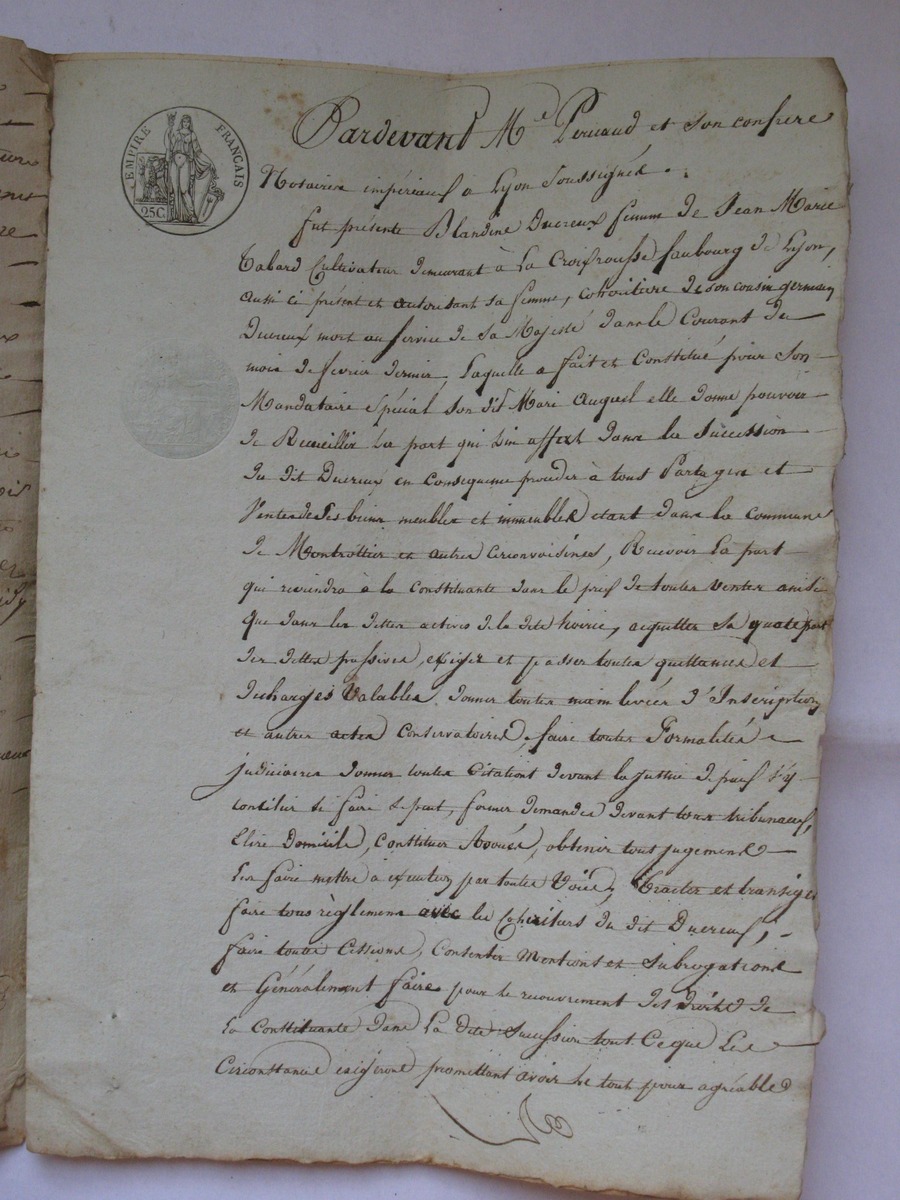 EMPIRE FRANÇAIS
25C.
Pardevant Me Peruaud et son confrere
Notaires impériaux à Lyon soussignés.
fut présente Blandine Ducreux femme de Jean Marie
Tabard Cultivateur demeurant à La Croix rousse faubourg de Lyon,
aussi ci présent et autorisant sa femme, cohéritière de son cousin germain
Ducreux mort au service de sa Majesté dans le Courant du
mois de fevrier dernier, Laquelle a fait et Constitué pour son
Mandataire Spécial son dit Mari auquel elle donne pouvoir
de Recueillir la part qui lui affert dans la succession
du dit Ducreux en consequence proceder à tous Partages et
Ventes de ses biens meubles et immeubles etant dans la commune
de Montrottier et autres circonvoisines, Recevoir la part
qui reviendra à la constituante dans le prix de toutes ventes ainsi
que dans les dettes actives de la dite hoirie, acquitter sa quote part
des dettes passives, exiger et passer toutes quittances et
décharges Valables, donner toutes main levées d'Inscription
et autres actes Conservatoires, faire toutes Formalités
judiciaires donner toutes Citations devant la justice de paix s'y
concilier si faire se peut, former demandes devant tous tribunaux,
Elire Domicile, Constituer Avoués, obtenir tous jugemens
Les faire mettre à execution par toutes Voies, traiter et transiger
faire tous règlemens avec les Cohéritiers du dit Ducreux,
faire toutes Cessions, Consentir Mentions et Subrogations
et Généralement faire pour le recouvrement des droits de
la Constituante dans La dite succession tout Ce que Les
Circonstances exigeront promettant avoir le tout pour agréable